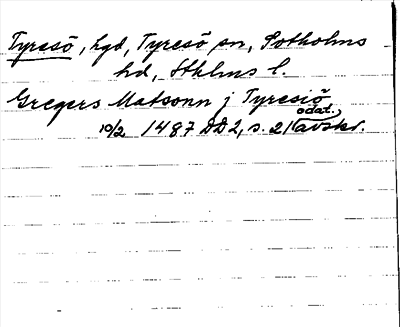 Tyresö, hgd, Tyresö sn, Sotholms
hd, Sthlms l.
Gregers Matsonn j Tyresiö
odat.
10/2 1487 DD2, s. 21 (avskr.